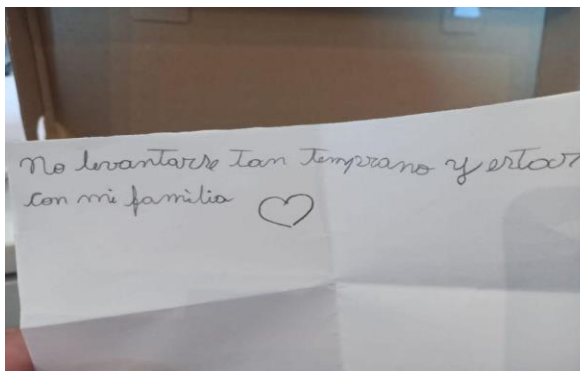 No levantarse tan temprano y estar
con mi familia